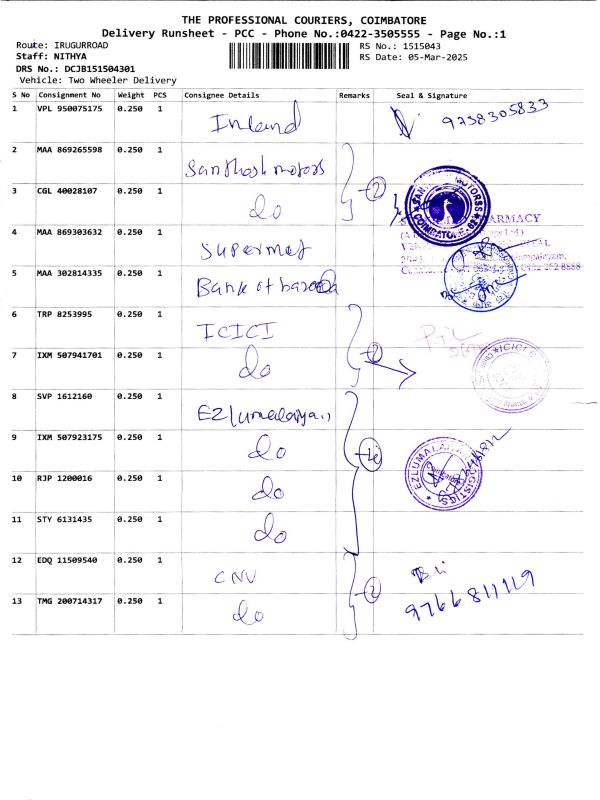 THE PROFESSIONAL COURIERS, COIMBATORE
Delivery Runsheet - PCC - Phone No.:0422-3505555 - Page No.:1
Route: IRUGURROAD
RS No.: 1515043
Staff: NITHYA
RS Date: 05-Mar-2025
DRS No.: DCJB151504301
Vehicle: Two Wheeler Delivery
S No Consignment No Weight PCS Consignee Details Remarks Seal & Signature
1 VPL 950075175 0.250 1 Inland 9738305833
2 MAA 869265598 0.250 1 Santhosh motors 2
3 CGL 40028107 0.250 1 do
COIMBATORE
ARMACY
4 MAA 869303632 0.250 1
5 MAA 302814335 0.250 1 Bank of baroda
6 TRP 8253995 0.250 1 ICICI 2
7 IXM 507941701 0.250 1 do
ICICI
8 SVP 1612160 0.250 1
9 IXM 507923175 0.250 1 do
EZLUMALAI LOGISTICS
10 RJP 1200016 0.250 1 do
11 STY 6131435 0.250 1 do
12 EDQ 11509540 0.250 1 CNV 2
13 TMG 200714317 0.250 1 do